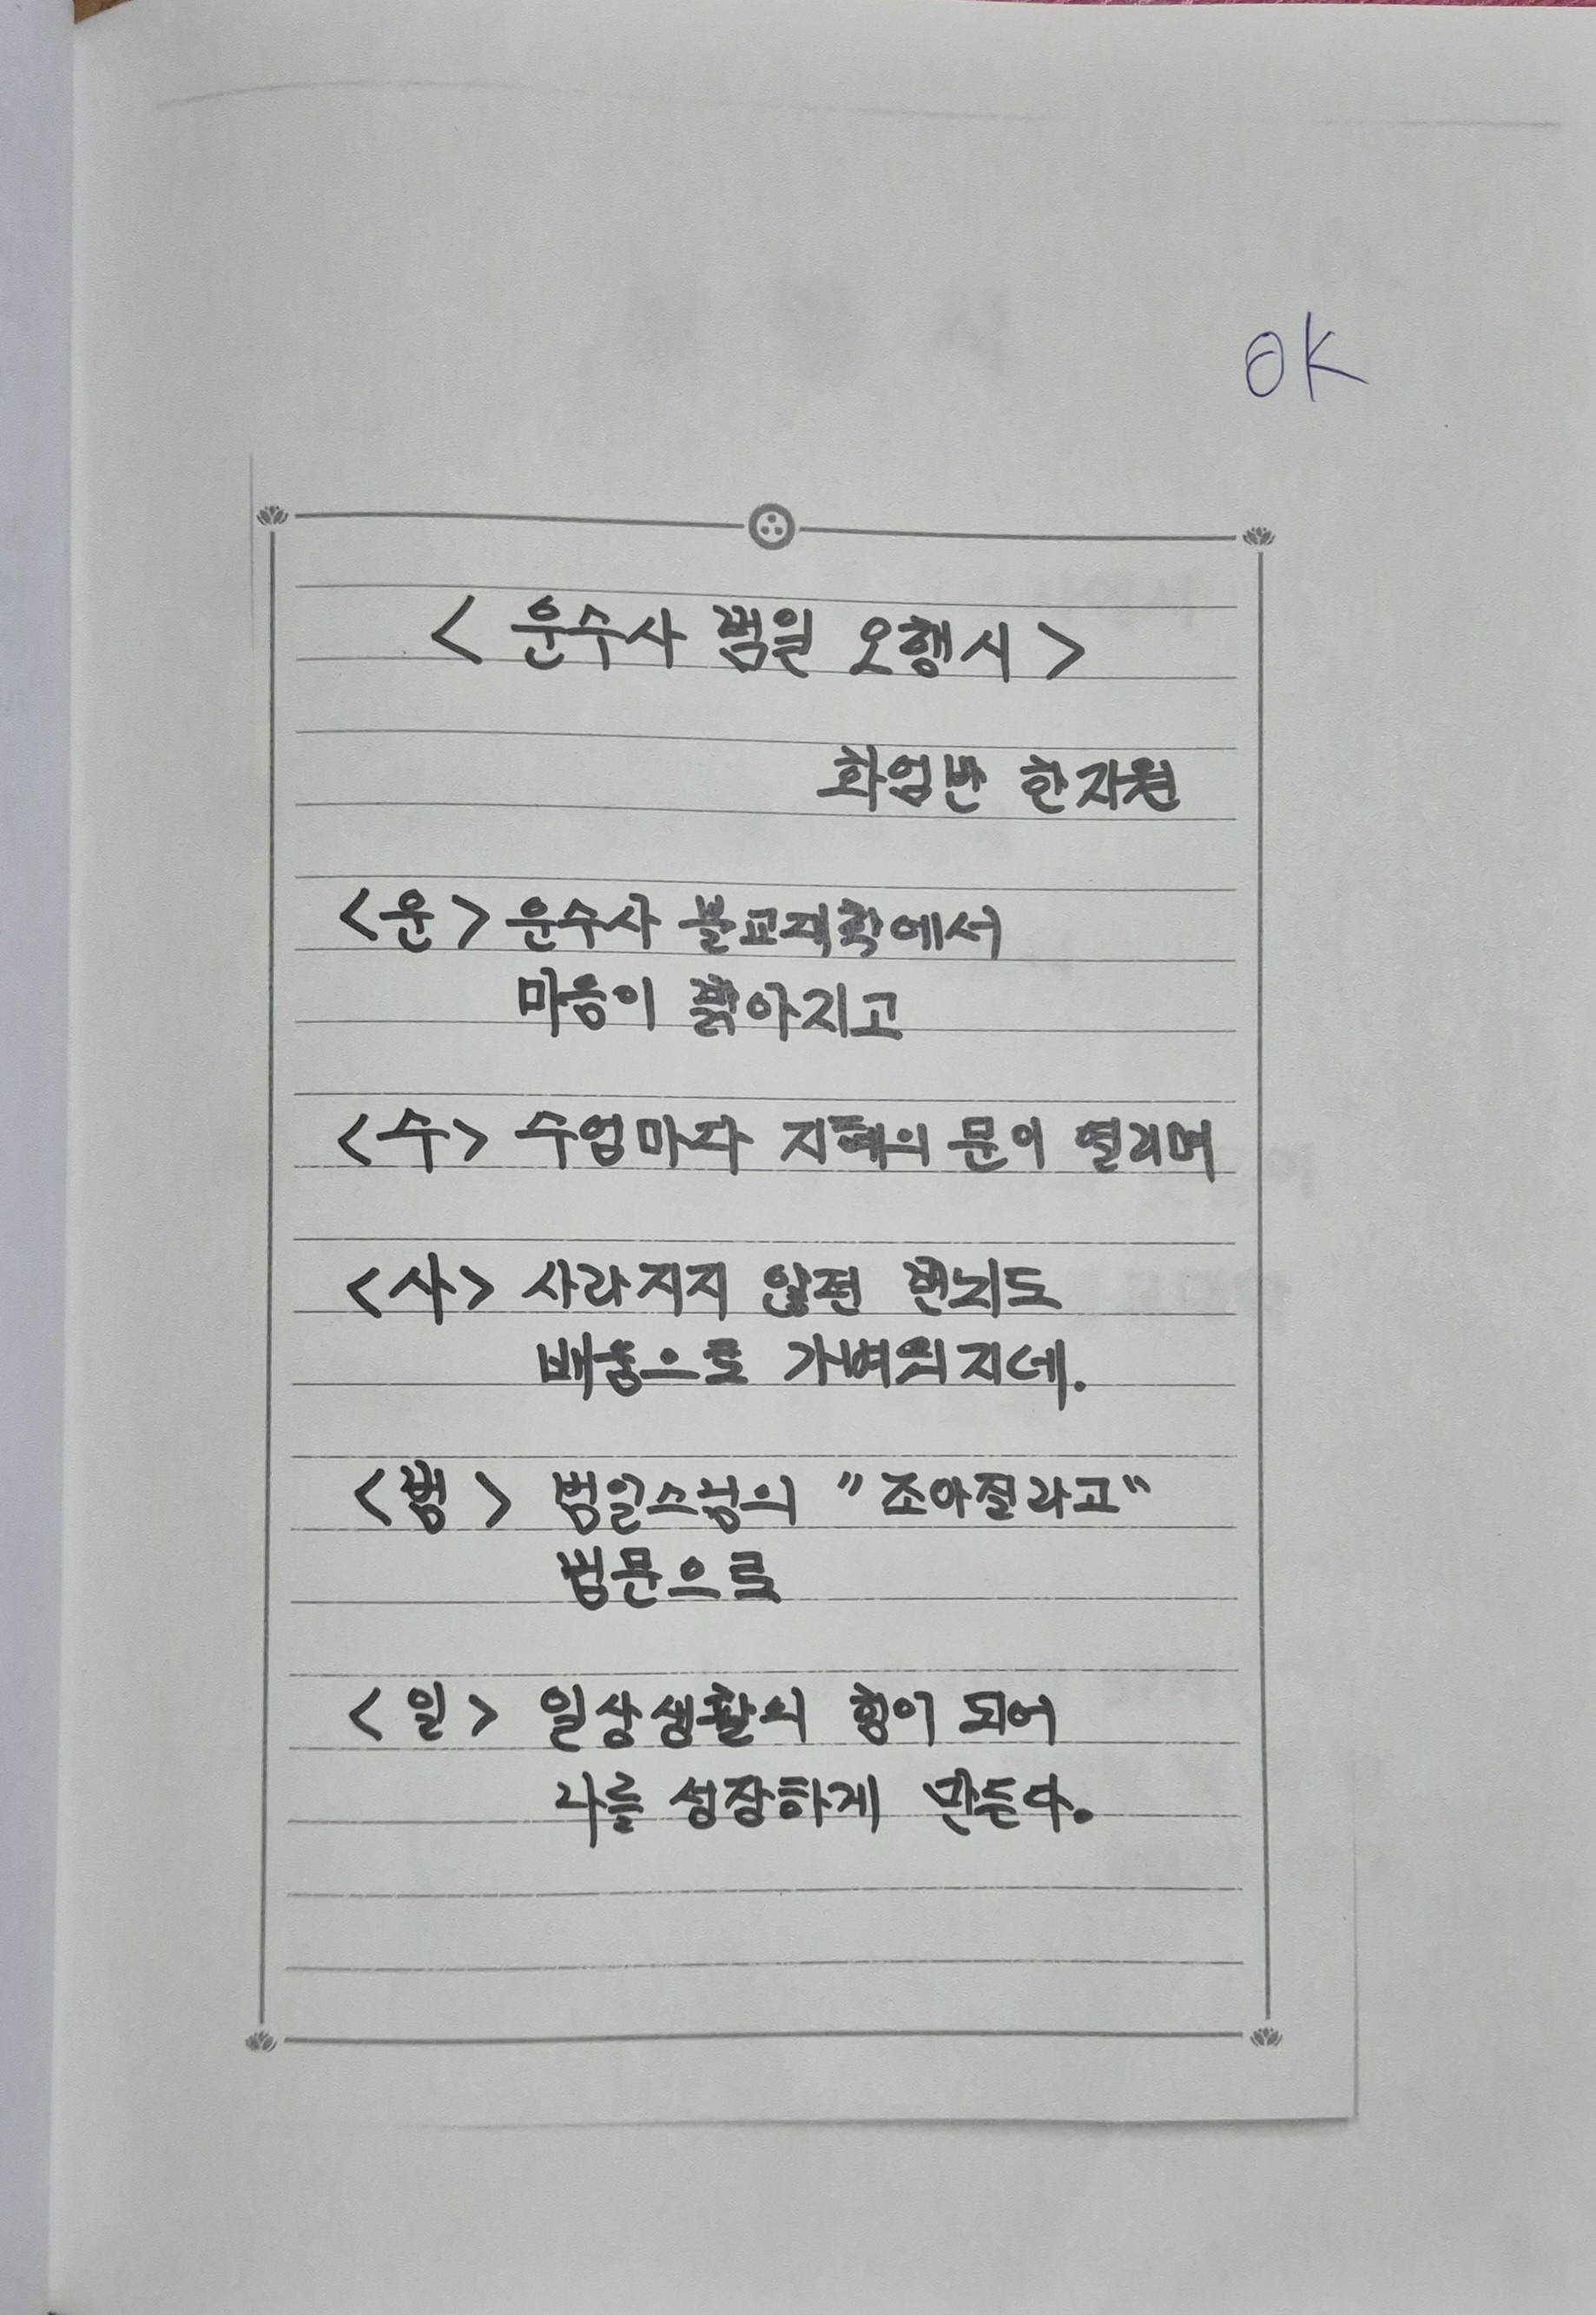 OK
< 운수사 범일 오행시 >
화엄반 한자원
<운> 운수사 불교대학에서
마음이 밝아지고
<수> 수업마다 지혜의 문이 열리며
<사> 사라지지 않던 번뇌도
배움으로 가벼워지네.
<범> 범일스님의 "조아질라고"
법문으로
<일> 일상생활의 힘이 되어
나를 성장하게 만든다.